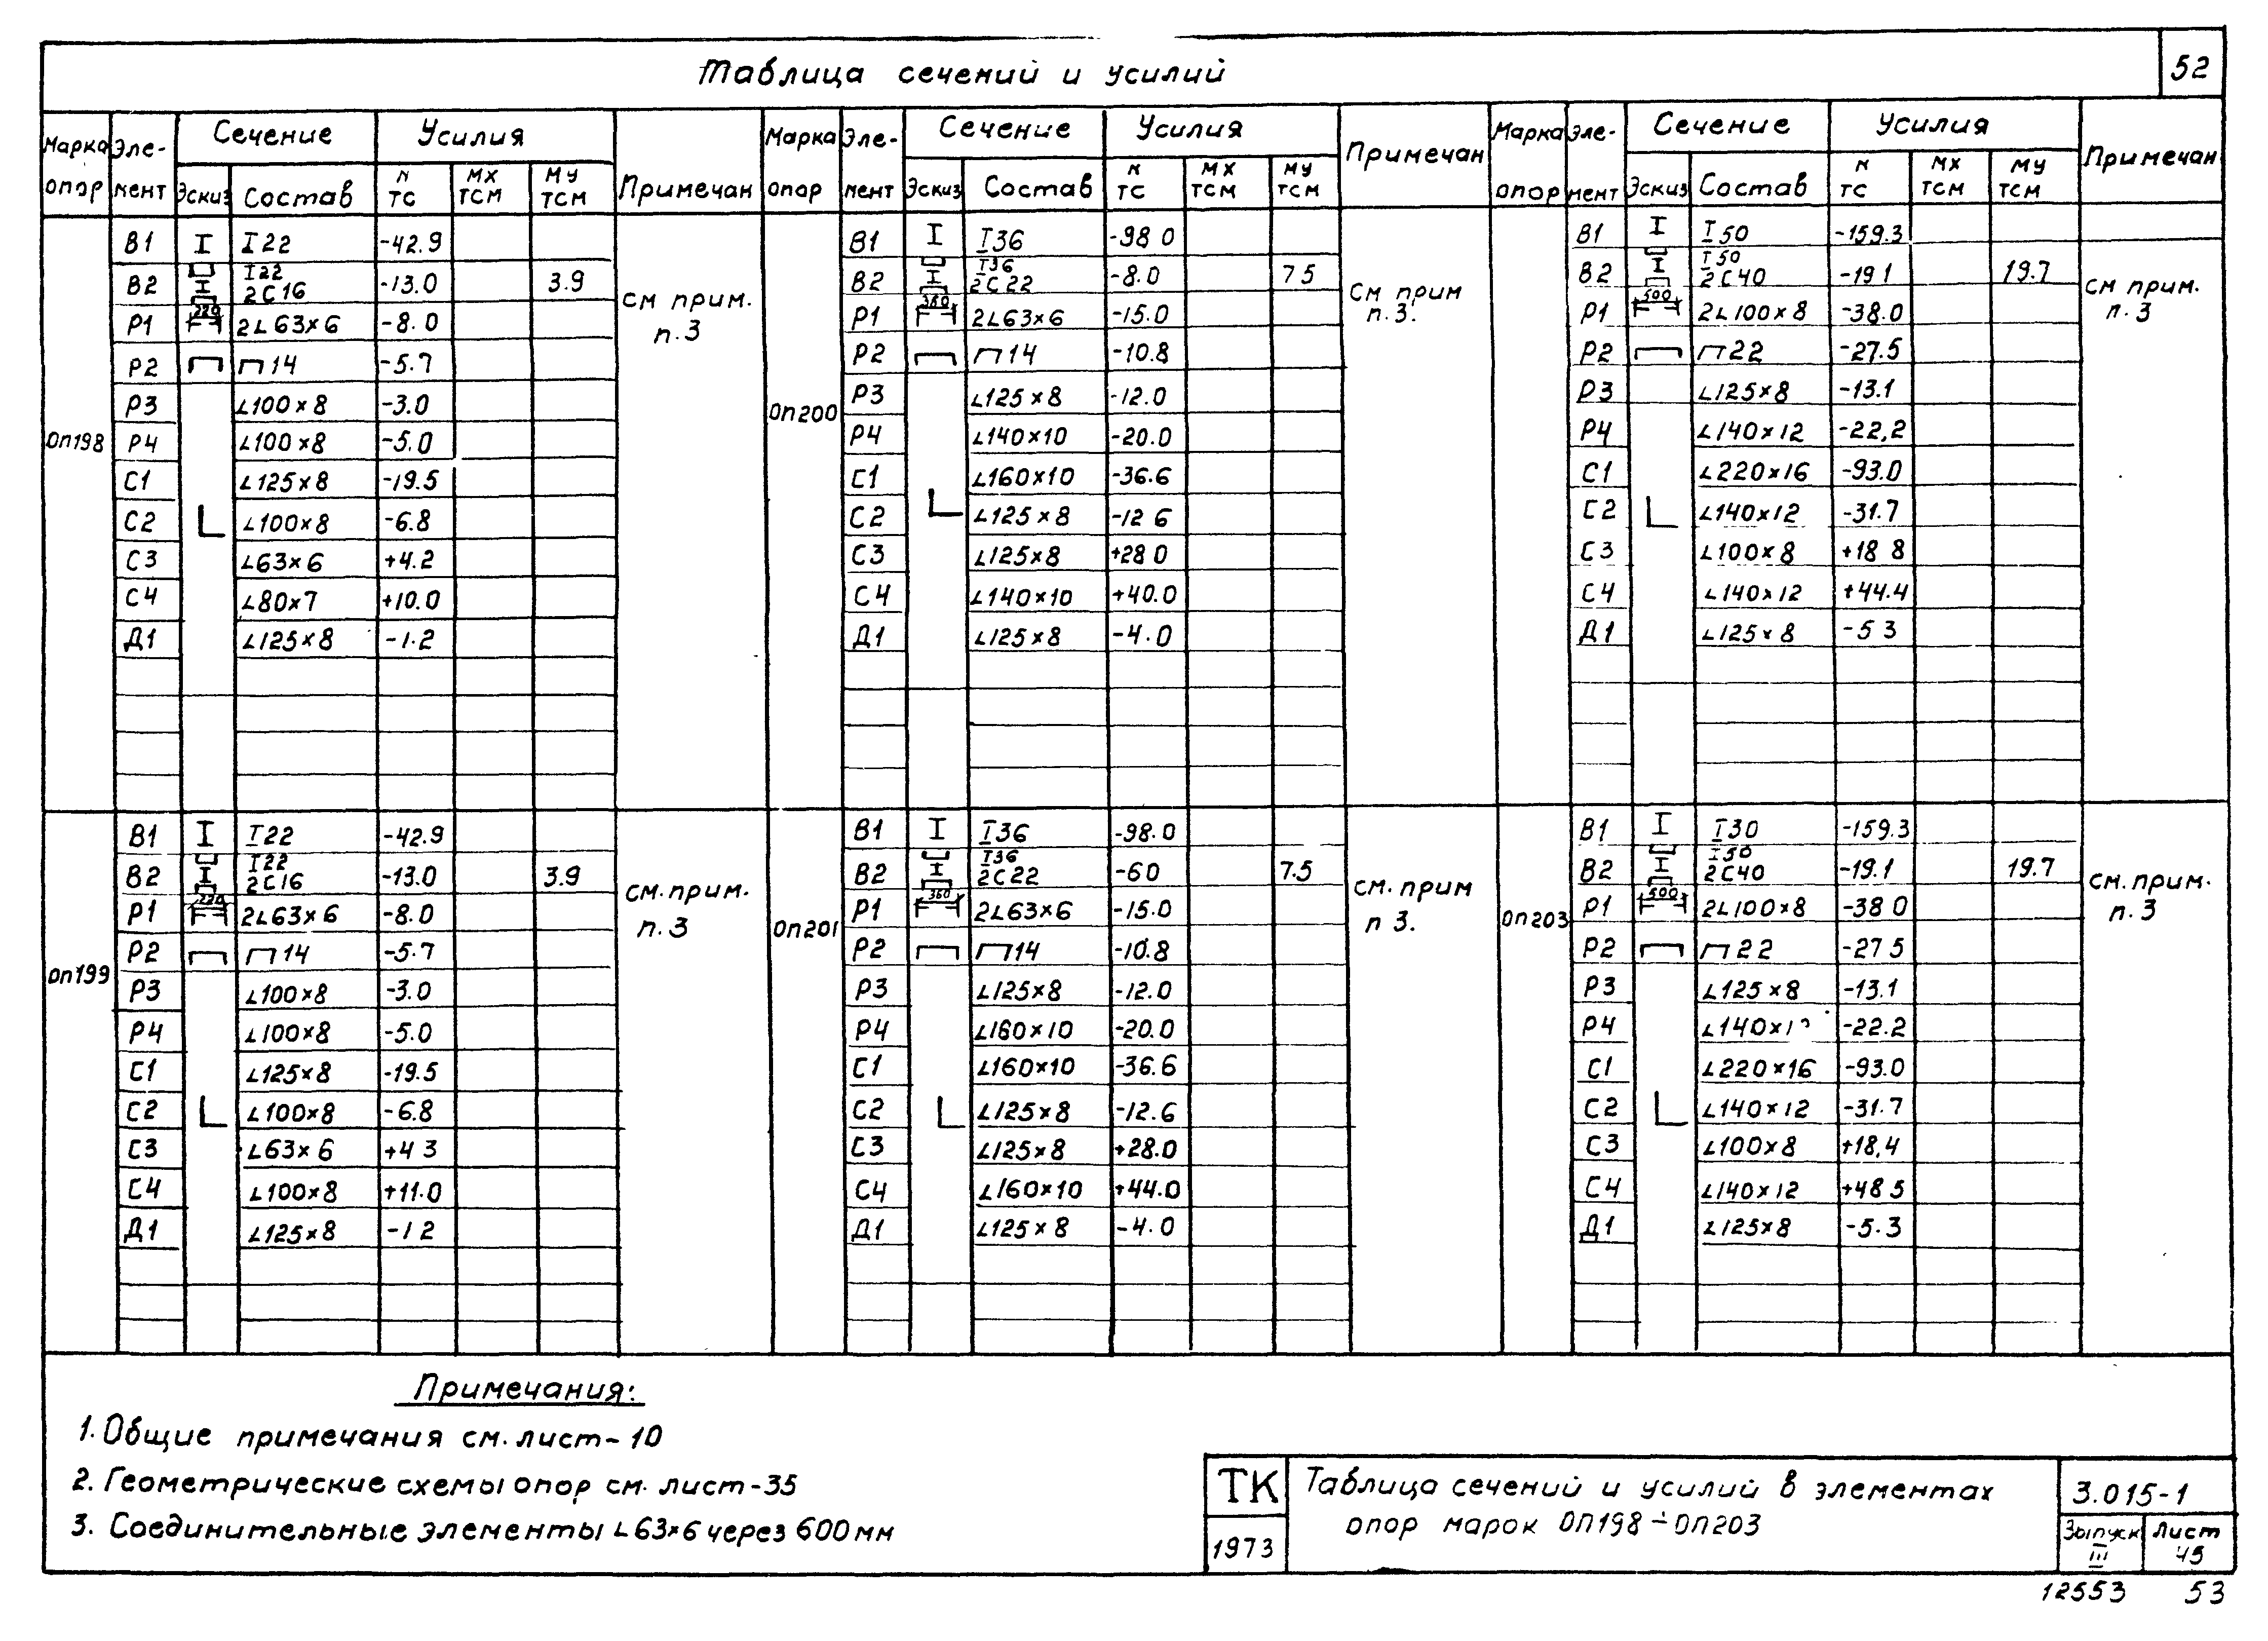 Таблица сечений и усилий
52
Марка опор Эле-мент Сечение Усилия Примечан
Эскиз Состав N ТС МХ ТСМ МУ ТСМ
Марка опор Эле-мент Сечение Усилия Примечан
Эскиз Состав N ТС МХ ТСМ МУ ТСМ
Марка опор Эле-мент Сечение Усилия Примечан
Эскиз Состав N ТС МХ ТСМ МУ ТСМ
ОП198
В1 I22 -42.9
В2 I22 2С16 -13.0 3.9
Р1 220 2L63×6 -8.0
Р2 П14 -5.7
Р3 L100×8 -3.0
Р4 L100×8 -5.0
С1 L125×8 -19.5
С2 L100×8 -6.8
С3 L63×6 +4.2
С4 L80×7 +10.0
Д1 L125×8 -1.2
см прим.
п.3
ОП200
В1 I36 -98 0
В2 I36 2С22 -8.0 7 5
Р1 360 2L63×6 -15.0
Р2 П14 -10.8
Р3 L125×8 -12.0
Р4 L140×10 -20.0
С1 L160×10 -36.6
С2 L125×8 -12 6
С3 L125×8 +28 0
С4 L140×10 +40.0
Д1 L125×8 -4.0
См прим
п.3.
В1 I50 -159.3
В2 I50 2С40 -19 1 19.7
Р1 500 2L100×8 -38.0
Р2 П22 -27.5
Р3 L125×8 -13.1
Р4 L140×12 -22,2
С1 L220×16 -93.0
С2 L140×12 -31.7
С3 L100×8 +18 8
С4 L140×12 +44.4
Д1 L125×8 -5 3
см прим.
п.3
ОП199
В1 I22 -42.9
В2 I22 2С16 -13.0 3.9
Р1 220 2L63×6 -8.0
Р2 П14 -5.7
Р3 L100×8 -3.0
Р4 L100×8 -5.0
С1 L125×8 -19.5
С2 L100×8 -6.8
С3 L63×6 +4 3
С4 L100×8 +11.0
Д1 L125×8 -1 2
см.прим.
п.3
ОП201
В1 I36 -98.0
В2 I36 2С22 -6 0 7.5
Р1 360 2L63×6 -15.0
Р2 П14 -10.8
Р3 L125×8 -12.0
Р4 L160×10 -20.0
С1 L160×10 -36.6
С2 L125×8 -12.6
С3 L125×8 +28.0
С4 L160×10 +44.0
Д1 L125×8 -4.0
см.прим
п 3.
ОП203
В1 I30 -159.3
В2 I50 2С40 -19.1 19.7
Р1 500 2L100×8 -38 0
Р2 П22 -27 5
Р3 L125×8 -13.1
Р4 -22.2
С1 L220×16 -93.0
С2 L140×12 -31.7
С3 L100×8 +18,4
С4 L140×12 +48 5
Д1 L125×8 -5.3
см.прим.
п.3
Примечания:
1. Общие примечания см. лист-10
2. Геометрические схемы опор см. лист-35
3. Соединительные элементы L63×6 через 600 мм
ТК
1973
Таблица сечений и усилий в элементах
опор марок ОП198÷ОП203
3.015-1
Выпуск III
Лист 45
12553 53